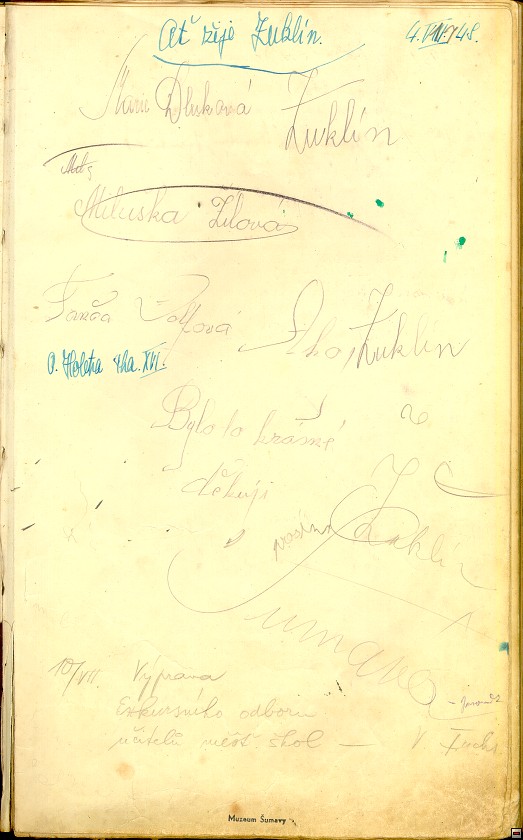 Ať žije Zuklín. 4.VIII.48.
Marie Dlusková Zuklín
Miluska Žílová
Fanča Ahoj Zuklín
O. Holena
Bylo to krásné
děkuji
Zuklín
Šumava
10/VIII. Výprava
Exkursního odboru
učitelů měšť. škol — V. Fuchs
Muzeum Šumavy